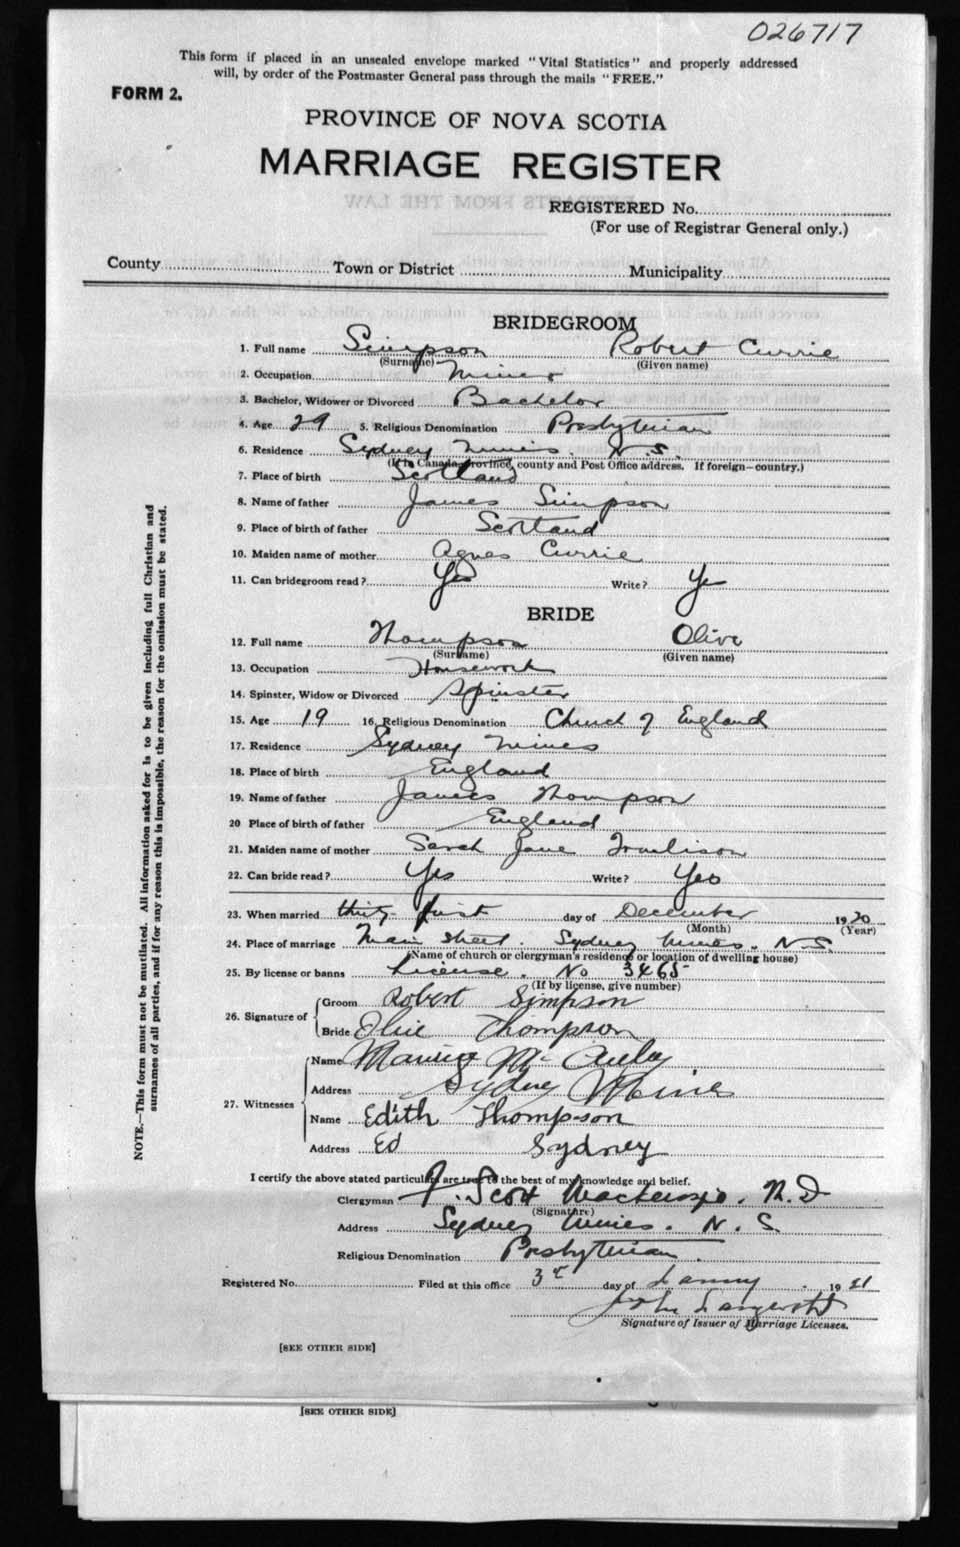 026717
This form if placed in an unsealed envelope marked "Vital Statistics" and properly addressed
will, by order of the Postmaster General pass through the mails "FREE."
FORM 2.
PROVINCE OF NOVA SCOTIA
MARRIAGE REGISTER
REGISTERED No.
(For use of Registrar General only.)
County Town or District Municipality
BRIDEGROOM
1. Full name Simpson Robert Currie
(Surname) (Given name)
2. Occupation Miner
3. Bachelor, Widower or Divorced Bachelor
4. Age 29 5. Religious Denomination Presbyterian
6. Residence Sydney Mines. N.S.
(If in Canada—province, county and Post Office address. If foreign—country.)
7. Place of birth Scotland
8. Name of father James Simpson
9. Place of birth of father Scotland
10. Maiden name of mother Agnes Currie
11. Can bridegroom read? Yes Write? Yes
BRIDE
12. Full name Thompson Olive
(Surname) (Given name)
13. Occupation Housework
14. Spinster, Widow or Divorced Spinster
15. Age 19 16. Religious Denomination Church of England
17. Residence Sydney Mines
18. Place of birth England
19. Name of father James Thompson
20 Place of birth of father England
21. Maiden name of mother Sarah Jane Tomlison
22. Can bride read? Yes Write? Yes
23. When married thirty first day of December 1920
(Month) (Year)
24. Place of marriage Main Street. Sydney Mines. N.S.
(Name of church or clergyman's residence or location of dwelling house)
25. By license or banns License. No 3465
(If by license, give number)
26. Signature of Groom Robert Simpson
Bride Olive Thompson
27. Witnesses Name McAuley
Address Sydney Mines
Name Edith Thompson
Address Ed Sydney
I certify the above stated particulars are true to the best of my knowledge and belief.
Clergyman J. Scott Mackenzie. M.D
(Signature)
Address Sydney Mines. N.S.
Religious Denomination Presbyterian
Registered No. Filed at this office 3rd day of January 1921
John
Signature of Issuer of Marriage Licenses.
[SEE OTHER SIDE]
[SEE OTHER SIDE]
NOTE.—This form must not be mutilated. All information asked for is to be given including full Christian and
surnames of all parties, and if for any reason this is impossible, the reason for the omission must be stated.